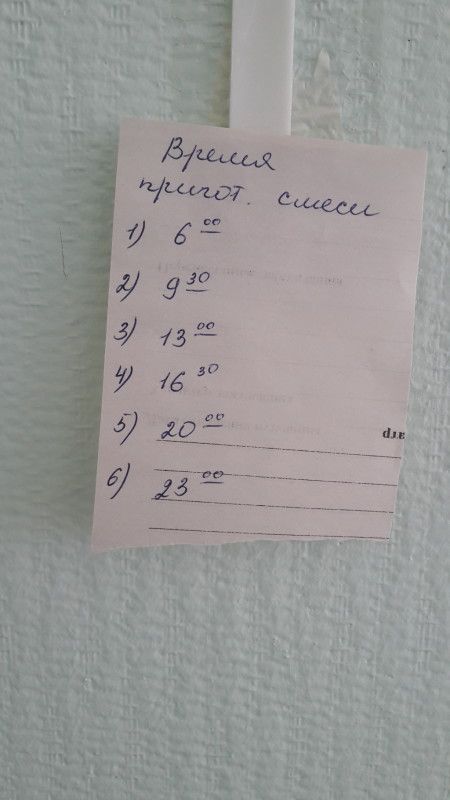 Время
пригот. смеси
1) 6 00
2) 9 30
3) 13 00
4) 16 30
5) 20 00
6) 23 00